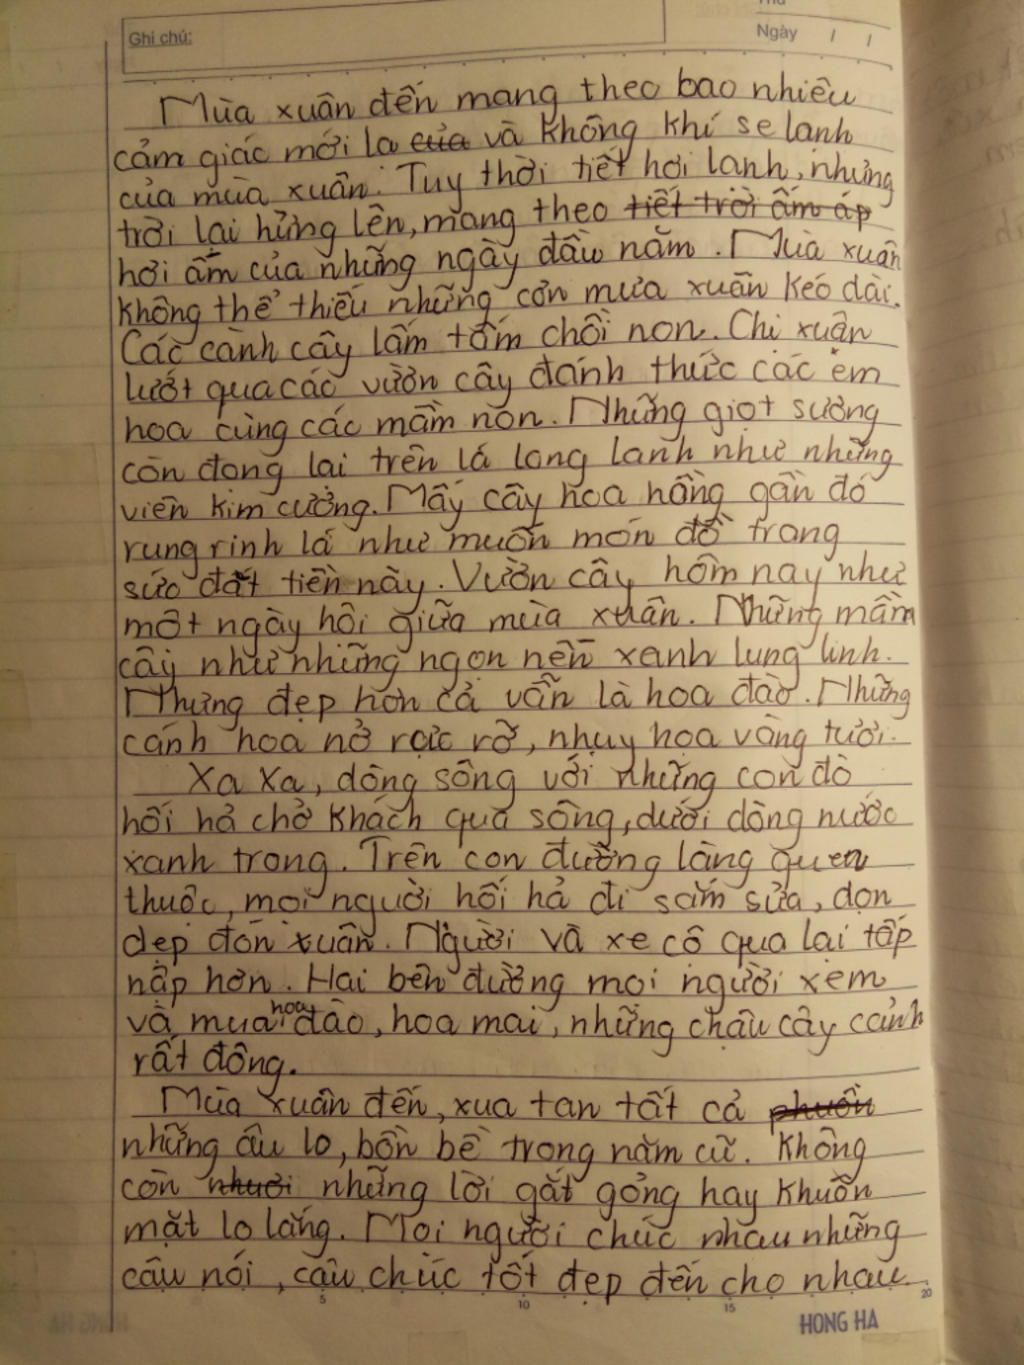 Thứ
Ghi chú:
Ngày / /
Mùa xuân đến mang theo bao nhiêu
cảm giác mới lạ của và không khí se lạnh
của mùa xuân. Tuy thời tiết hơi lạnh, nhưng
trời lại hửng lên, mang theo tiết trời ấm áp
hơi ấm của những ngày đầu năm. Mùa xuân
không thể thiếu những cơn mưa xuân kéo dài.
Các cành cây lấm tấm chồi non. Chị xuân
lướt qua các vườn cây đánh thức các em
hoa cùng các mầm non. Những giọt sương
còn đọng lại trên lá long lanh như những
viên kim cương. Mấy cây hoa hồng gần đó
rung rinh lá như muốn món đồ trang
sức đắt tiền này. Vườn cây hôm nay như
một ngày hội giữa mùa xuân. Những mầm
cây như những ngọn nến xanh lung linh.
Nhưng đẹp hơn cả vẫn là hoa đào. Những
cánh hoa nở rực rỡ, nhụy hoa vàng tươi.
Xa xa, dòng sông với những con đò
hối hả chở khách qua sông, dưới dòng nước
xanh trong. Trên con đường làng quen
thuộc, mọi người hối hả đi sắm sửa, dọn
dẹp đón xuân. Người và xe cộ qua lại tấp
nập hơn. Hai bên đường mọi người xem
và mua hoa đào, hoa mai, những chậu cây cảnh
rất đông.
Mùa xuân đến, xua tan tất cả phuồn
những âu lo, bộn bề trong năm cũ. Không
còn nhười những lời gắt gỏng hay khuôn
mặt lo lắng. Mọi người chúc nhau những
câu nói, câu chúc tốt đẹp đến cho nhau
5 10 15 20
HONG HA